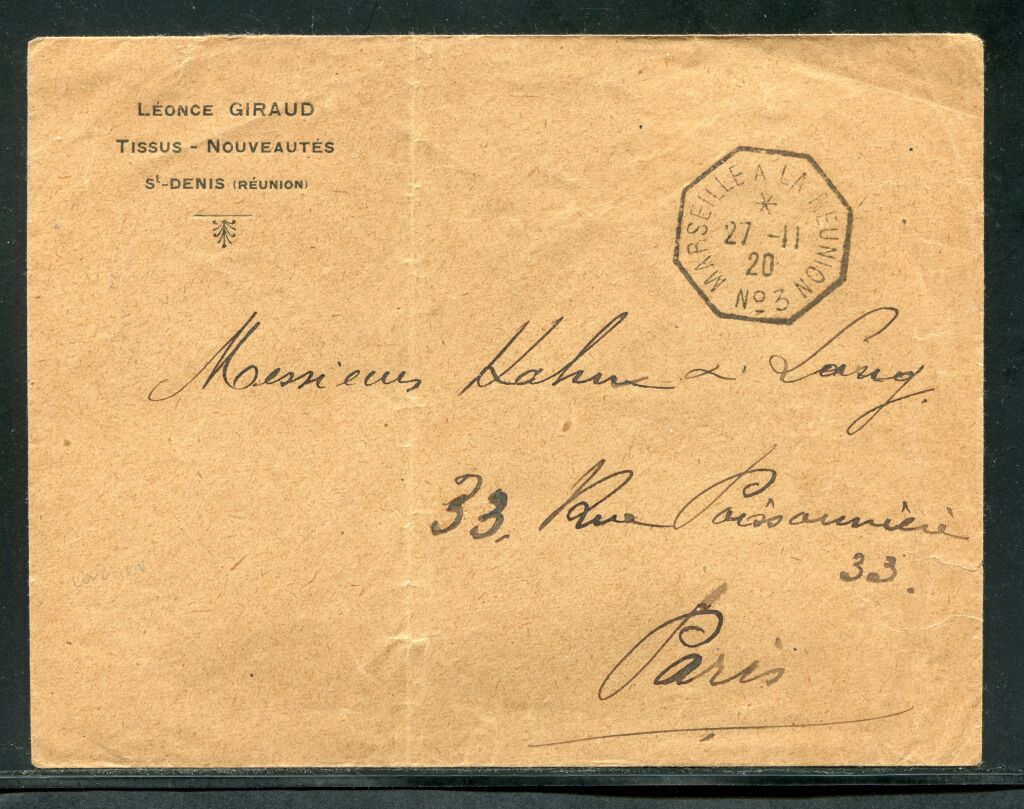 LÉONCE GIRAUD
TISSUS - NOUVEAUTÉS
St-DENIS (RÉUNION)
MARSEILLE A LA REUNION
27 -11
20
No 3
Messieurs Kahn & Lang.
33, Rue Poissonnière
33.
Paris